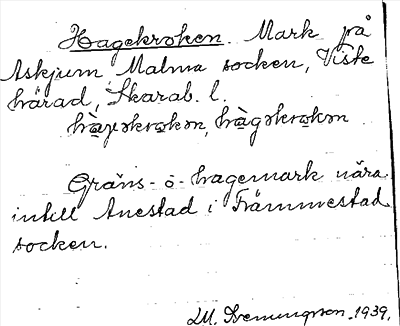 Hagekroken. Mark på
Askjum, Malma socken, Viste
härad, Skarab. l.
hàgəkrokən, hàgəkrokən
Gräns- o. hagemark nära
intill Anestad i Främmestad
socken.
1939.